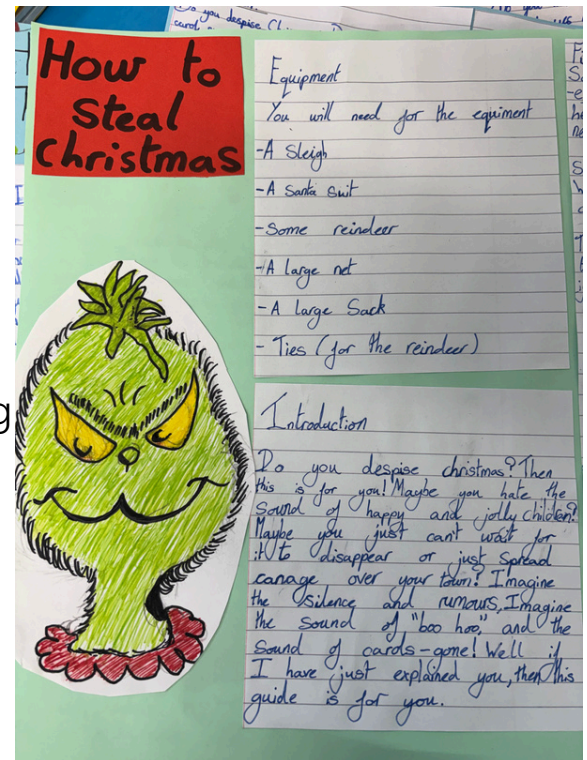 o you despise Ch
carol
How to
Steal
Christmas
Equipment
You will need for the equiment
-A Sleigh
-A Santa Suit
-Some reindeer
-A large net
-A large Sack
-Ties (for the reindeer)
Introduction
Do you despise christmas? Then
this is for you! Maybe you hate the
Sound of happy and jolly children?
Maybe you just can't wait for
it to disappear or just spread
canage over your town! Imagine
the silence and rumours, Imagine
the sound of "boo hoo," and the
Sound of cards-gone! Well if
I have just explained you, then this
guide is for you.
g